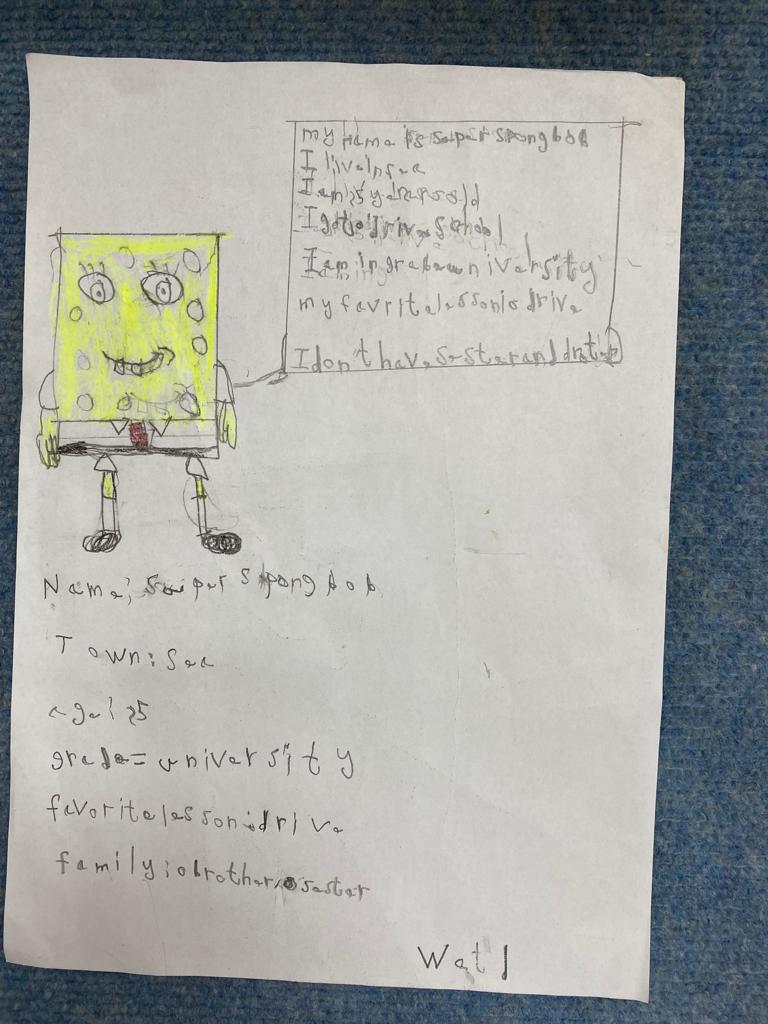 my name is super spongbob
I live in sea
I am 25 years old
I go to drive school
I am in grade university
my favrite lesson is drive
I don't have sester and brother
Name: super spongbob
Town: sea
age: 25
grade= university
favorite lesson: drive
family: 0 brother, 0 sester
Wat1